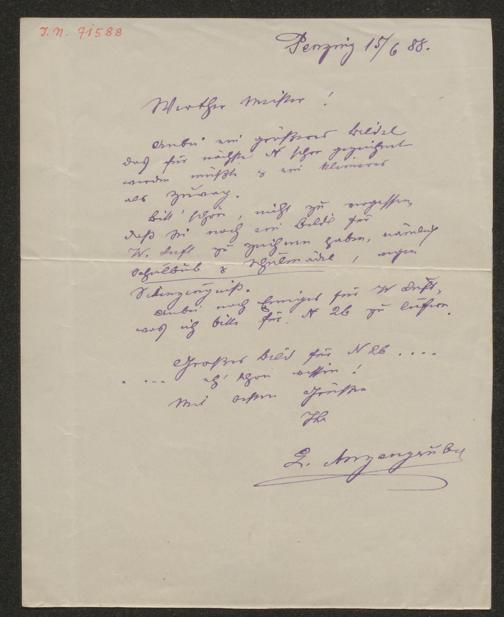 I.N. 91588
Penzing 15/6 88.
Werther Meister!
Anbei ein größeres Bildel
das für nächste N schon gezeichnet
werden müßte & ein kleineres
als Zuwag.
Bitt' schön, nicht zu vergessen
daß Sie noch ein Bildl für
W. Luft zu zeichnen haben, nämlich
Schulbub & Schulmadel, wegen
Anbei noch Einiges für W Luft,
was ich bitte für N 26 zu liefern.
Großes Bild für N 26 ....
.... eh' schon wissen!
Mit besten Grüßen
Ihr
L. Anzengruber